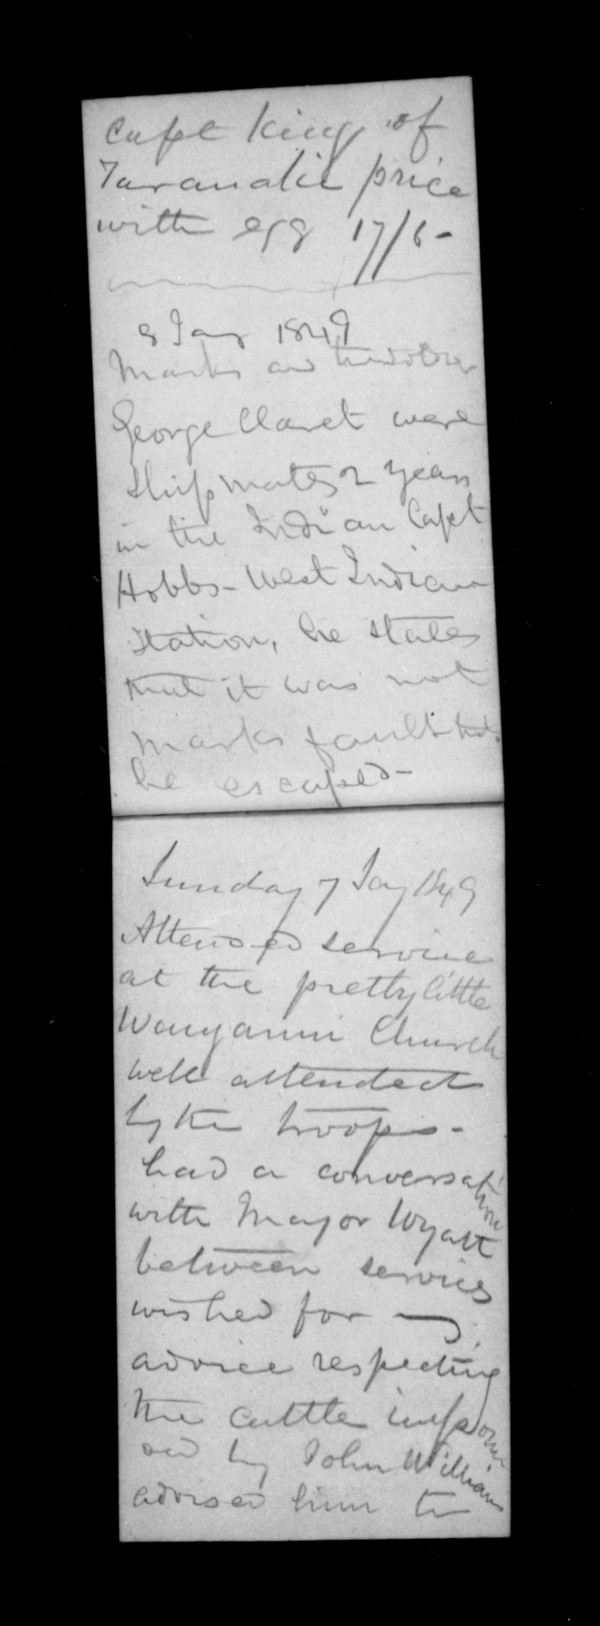 Capt King of
Taranakie price
with egg 17/6-
8 Jany 1849
Marks and
George Claret were
Ship mates 2 years
in the Indian Capt
Hobbs - West Indian
Station, he states
that it was not
Marks fault that
he escaped -
Sunday 7 Jany 1849
Attended service
at the pretty little
Wanganui Church
well attended
by the troops -
had a conversation
with Mayor Wyatt
between services
wished for my
advice respecting
the cattle impoun
ed by John Williams
advised him to